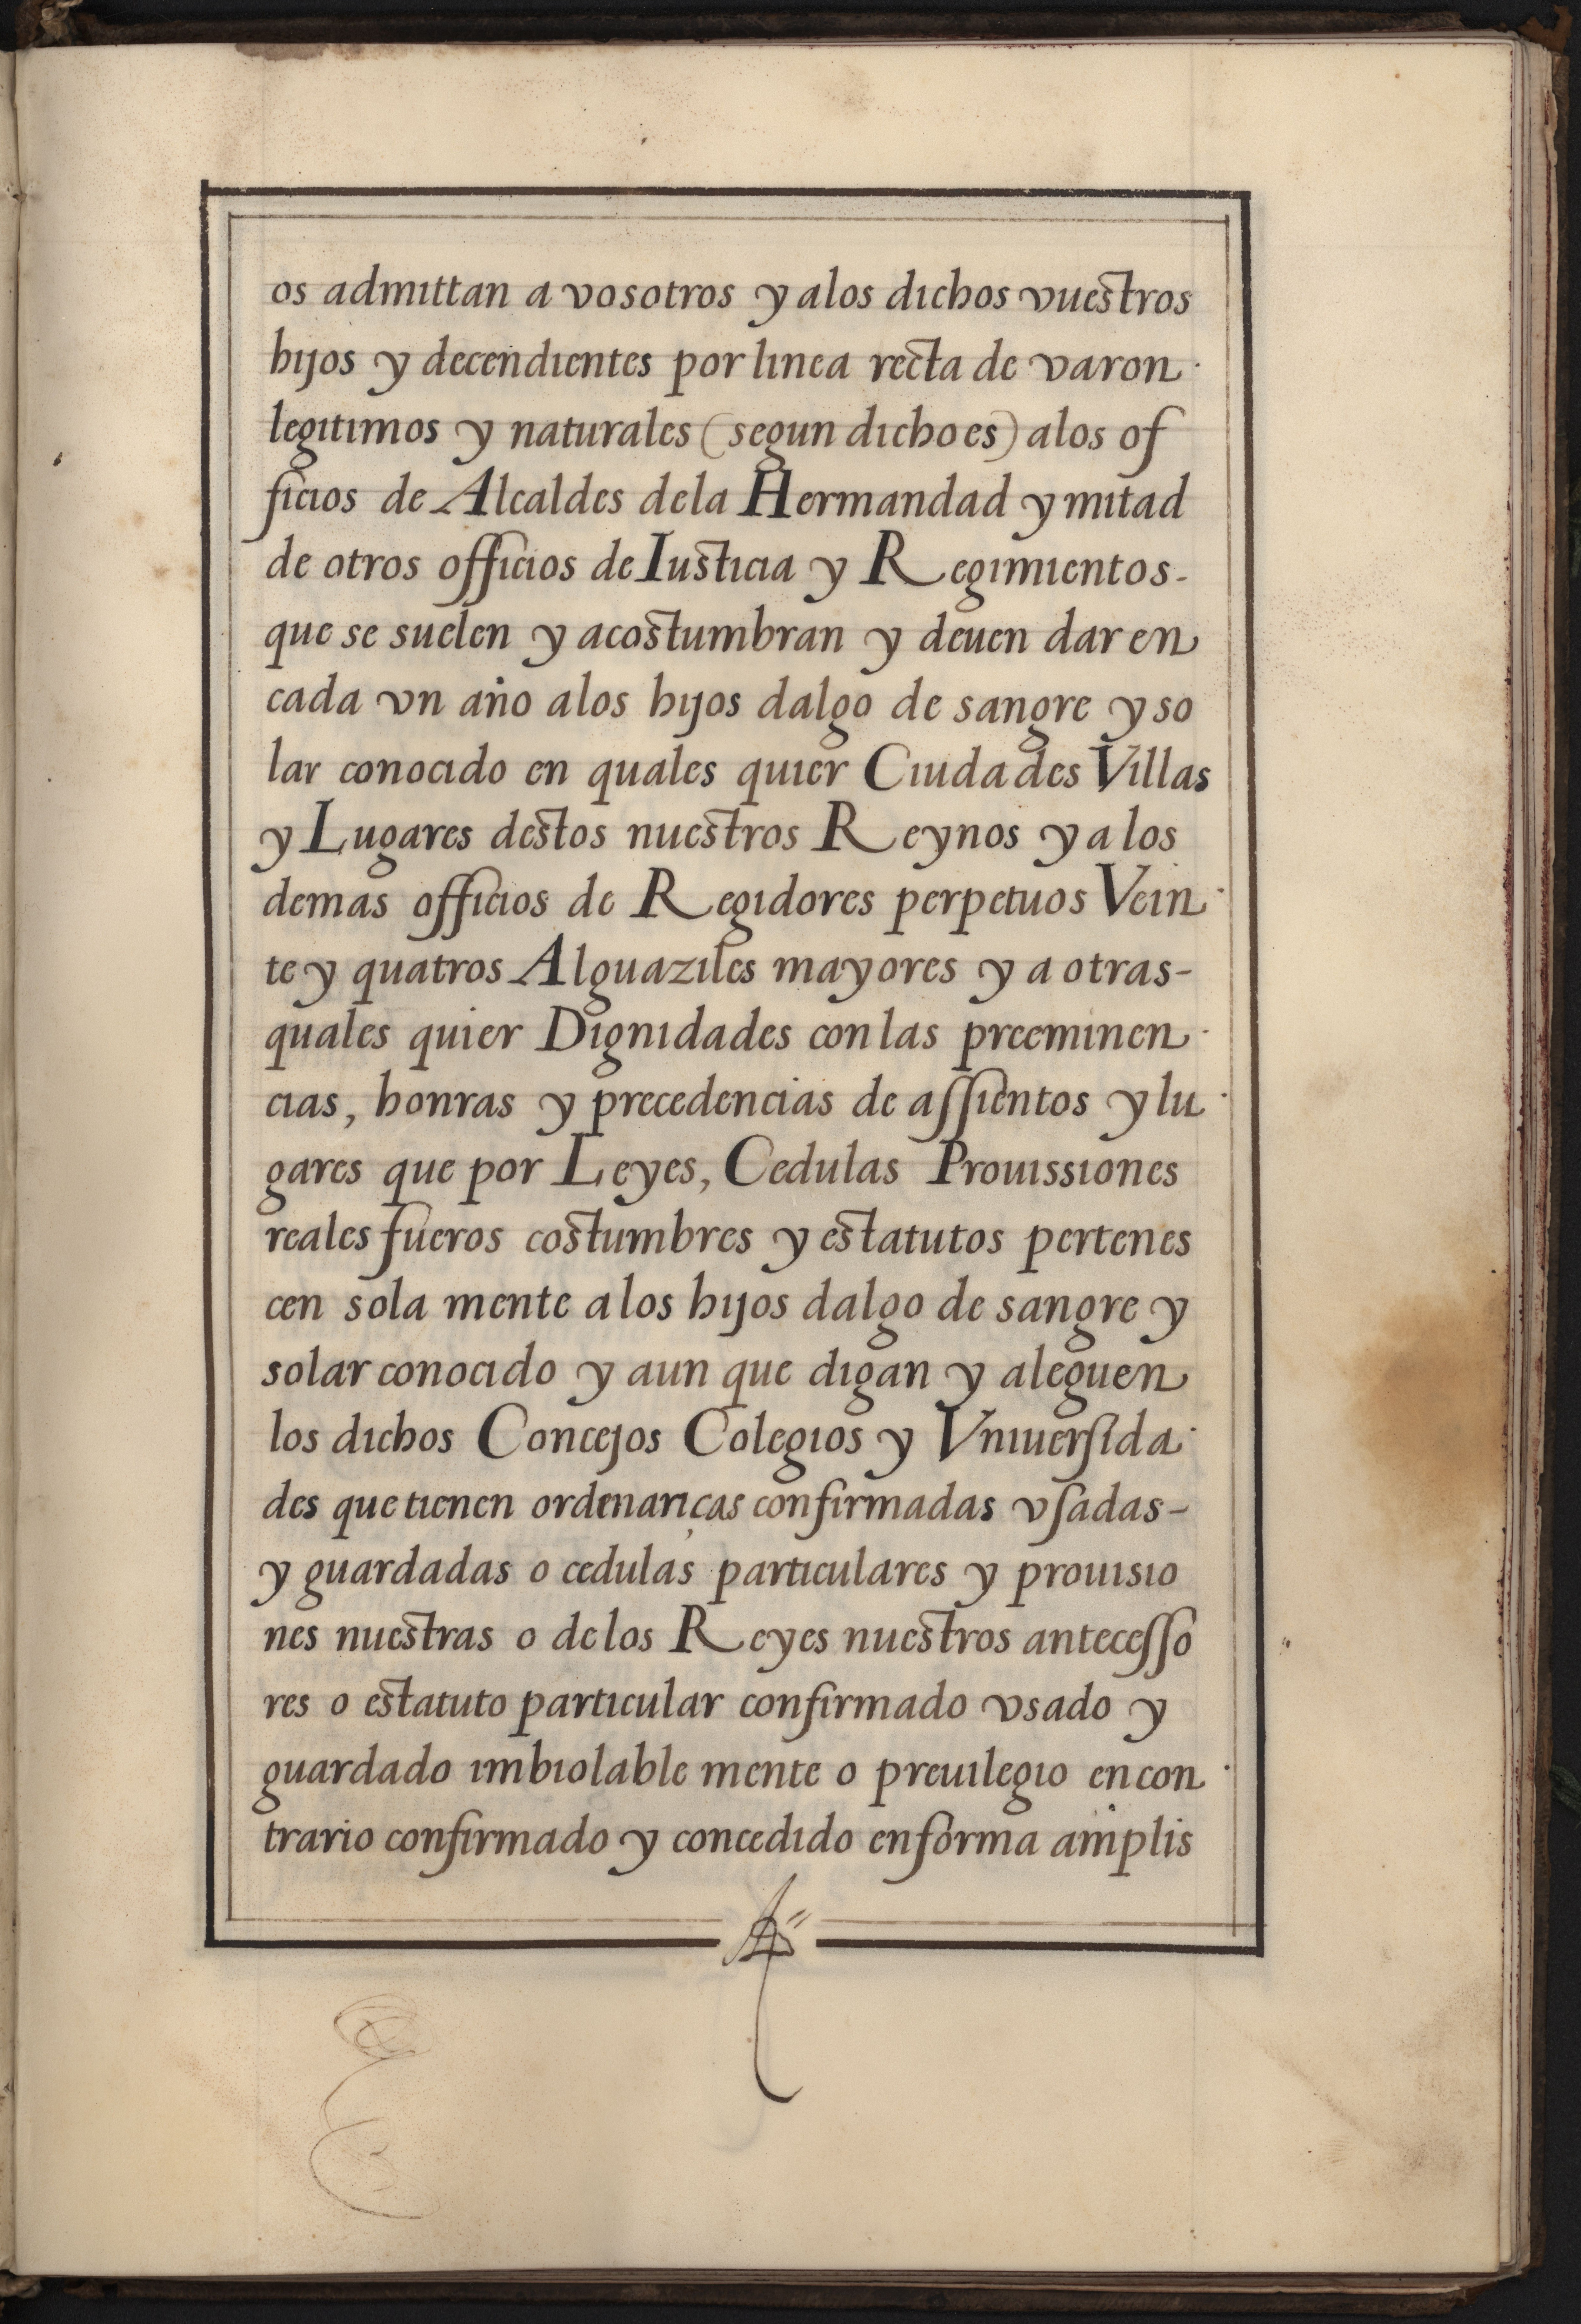 os admittan a vosotros y alos dichos vuestros
hijos y decendientes por linea recta de varon
legitimos y naturales (segun dicho es) alos of
ficios de Alcaldes dela Hermandad y mitad
de otros officios de Iusticia y Regimientos-
que se suelen y acostumbran y deuen dar en
cada vn año alos hijos dalgo de sangre y so
lar conocido en quales quier Ciudades Villas
y Lugares destos nuestros Reynos y a los
demas officios de Regidores perpetuos Vein
te y quatros Alguaziles mayores y a otras-
quales quier Dignidades con las preeminen
cias, honras y precedencias de assientos y lu
gares que por Leyes, Cedulas Prouissiones
reales fueros costumbres y estatutos pertenes
cen sola mente a los hijos dalgo de sangre y
solar conocido y aun que digan y aleguen
los dichos Concejos Colegios y Vniuersida
des que tienen ordenanças confirmadas vsadas-
y guardadas o cedulas particulares y prouisio
nes nuestras o de los Reyes nuestros antecesso
res o estatuto particular confirmado vsado y
guardado imbiolable mente o preuilegio en con
trario confirmado y concedido en forma amplis